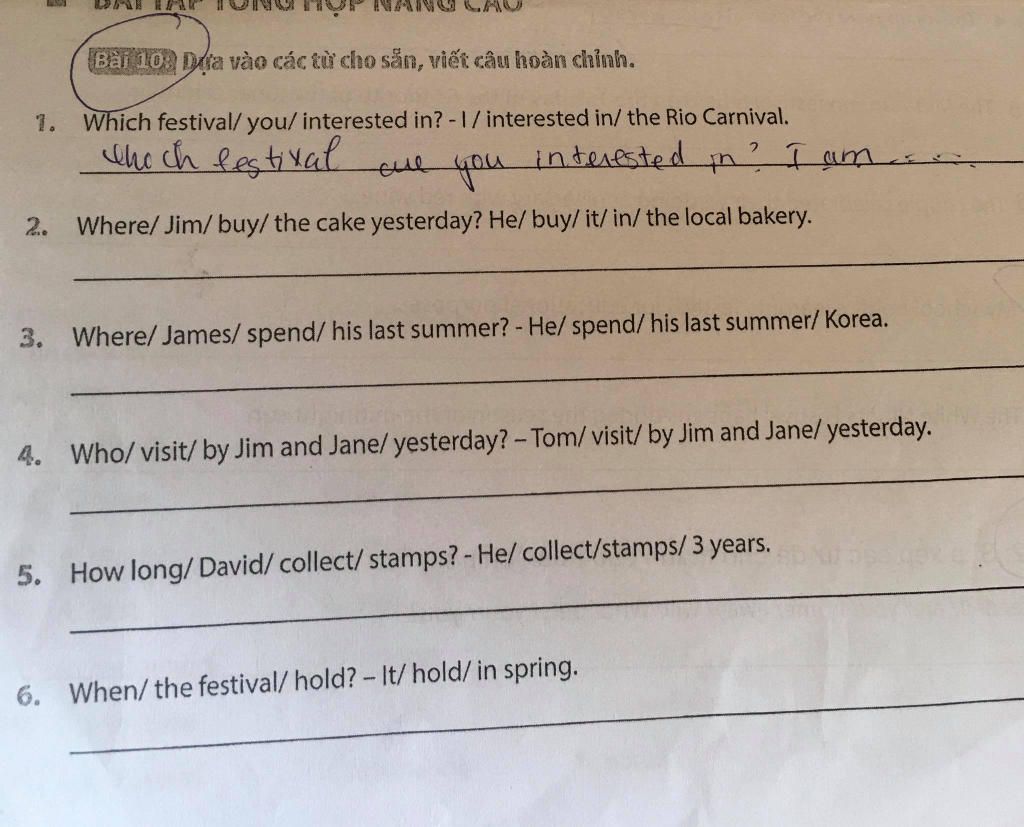 BÀI TẬP TỔNG HỢP NÂNG CAO
Bài 10: Dựa vào các từ cho sẵn, viết câu hoàn chỉnh.
1. Which festival/ you/ interested in? - I / interested in/ the Rio Carnival.
which festival are you interested in? I am .....
2. Where/ Jim/ buy/ the cake yesterday? He/ buy/ it/ in/ the local bakery.
3. Where/ James/ spend/ his last summer? - He/ spend/ his last summer/ Korea.
4. Who/ visit/ by Jim and Jane/ yesterday? – Tom/ visit/ by Jim and Jane/ yesterday.
5. How long/ David/ collect/ stamps? - He/ collect/stamps/ 3 years.
6. When/ the festival/ hold? – It/ hold/ in spring.